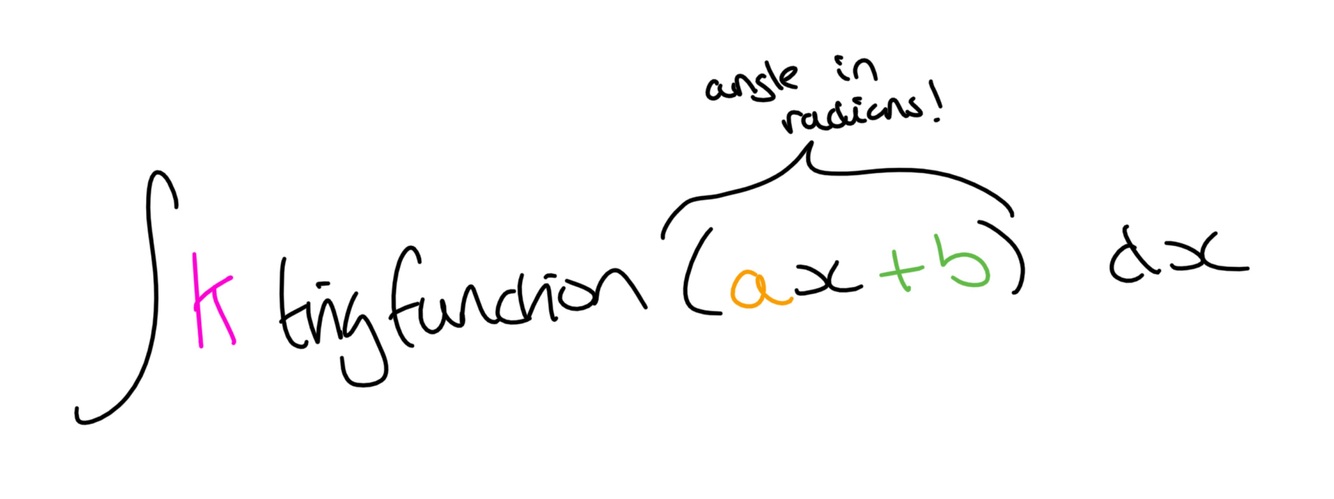 angle in
radians!
∫ k trig function (ax+b) dx